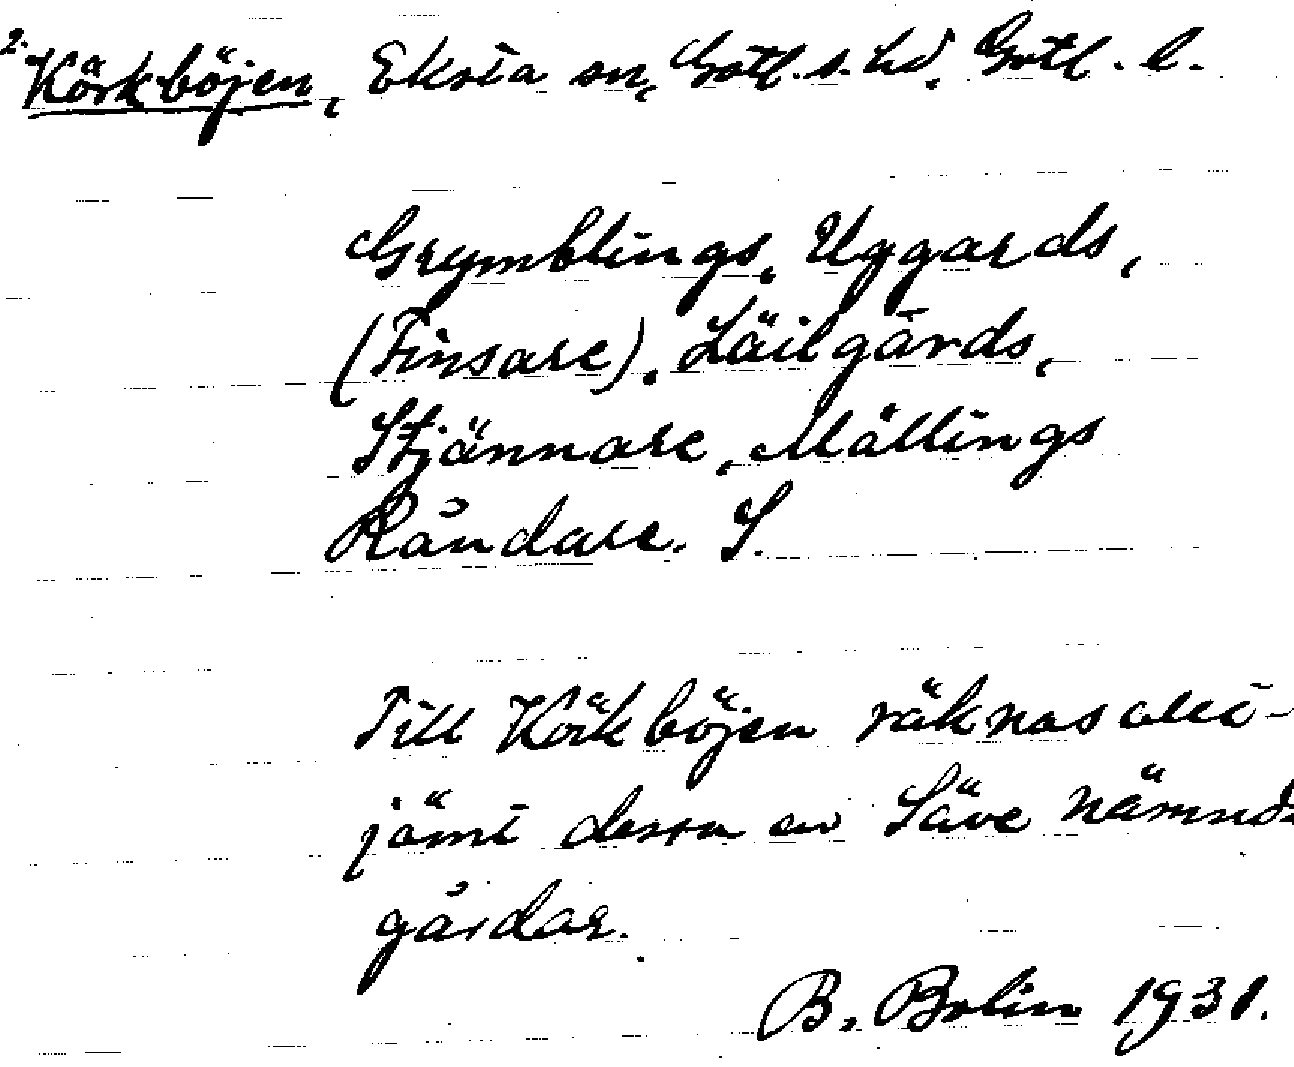 2.
Körkböjen, Eksta sn, Gotl. s. hd. Gotl. l.
Grymblings, Uggards,
(Finsare). Läilgårds,
Stjännare, Mällings
Råndare. S.
Till Körkböjen räknas allt-
jämt dessa av Säve nämnda
gårdar.
B. Bolin 1931.